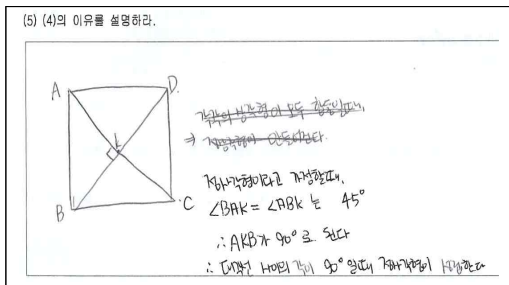 (5) (4)의 이유를 설명하라.
A
D
K
B
C
각각의 삼각형이 모두 합동일때,
⇒ 정사각형이 만들어진다.
정사각형이라고 가정할때,
∠BAK = ∠ABK 는 45°
∴ AKB가 90°로 된다
∴ 대각선 사이의 각이 90°일때 정사각형이 성립한다